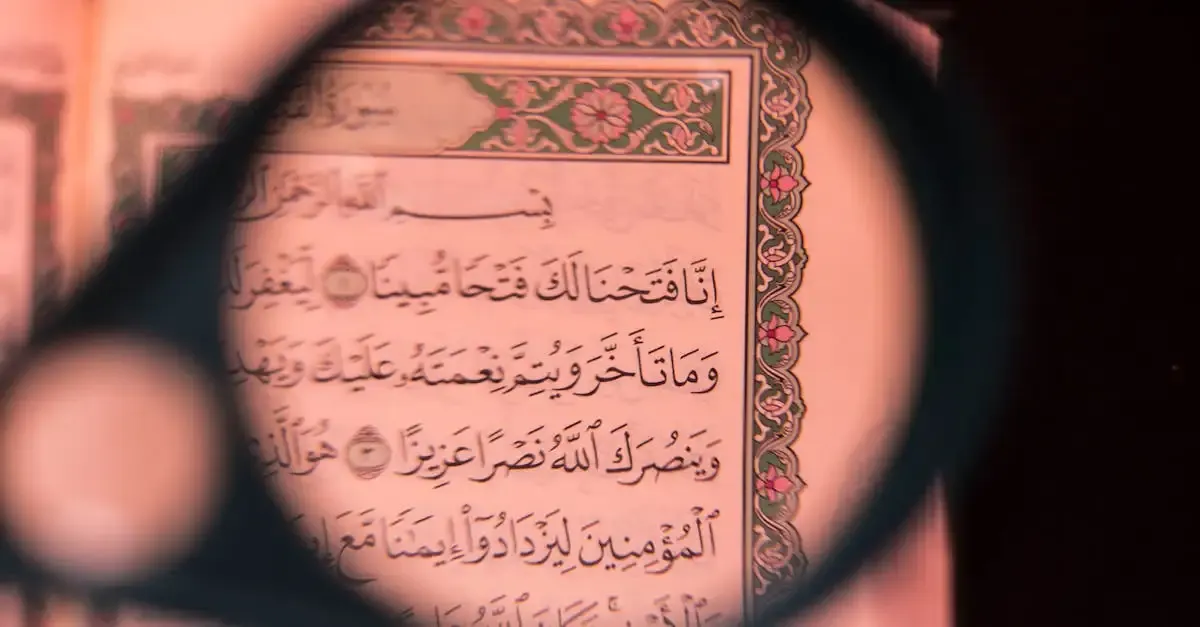 سُورَةُ الفَ
بِسْمِ اللَّهِ الرَّحْمَٰنِ
إِنَّا فَتَحْنَا لَكَ فَتْحًا مُّبِينًا ١ لِّيَغْفِرَ
وَمَا تَأَخَّرَ وَيُتِمَّ نِعْمَتَهُۥ عَلَيْكَ وَيَهْدِ
وَيَنصُرَكَ ٱللَّهُ نَصْرًا عَزِيزًا ٣ هُوَ ٱلَّذِ
ٱلْمُؤْمِنِينَ لِيَزْدَادُوٓا۟ إِيمَٰنًا مَّعَ